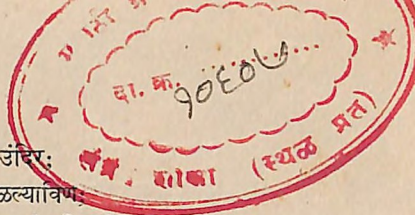 दा. क्र. ............
१०६०७
शाखा (स्थळ प्रत)
उंदिर;
ळल्याविण;